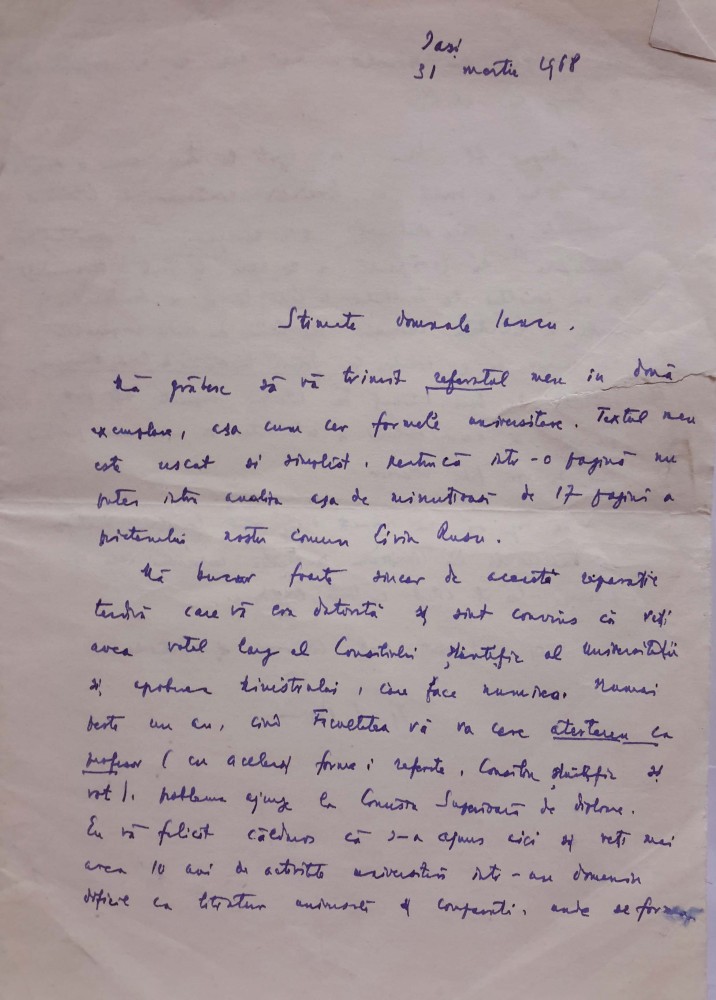 Iași
31 martie 1968
Stimate domnule Iancu.
Mă grăbesc să vă trimit referatul meu în două
exemplare, așa cum cer formele universitare. Textul meu
este uscat și simplist, pentrucă într-o pagină nu
putea intra analiza așa de minuțioasă de 17 pagini a
prietenului nostru comun Liviu Rusu.
Mă bucur foarte sincer de această reparație
tardivă care vă era datorită și sînt convins că veți
avea votul larg al Consiliului științific al Universității
și aprobarea Ministrului, care face numirea. Numai
peste un an, cînd Facultatea vă va cere atestarea ca
profesor (cu aceleași forme: referate, Consiliu științific și
vot), problema ajunge la Comisia Superioară de diplome.
Eu vă felicit călduros că s-a ajuns aici și veți mai
avea 10 ani de activitate universitară într-un domeniu
dificil ca literatura universală și comparată, unde se